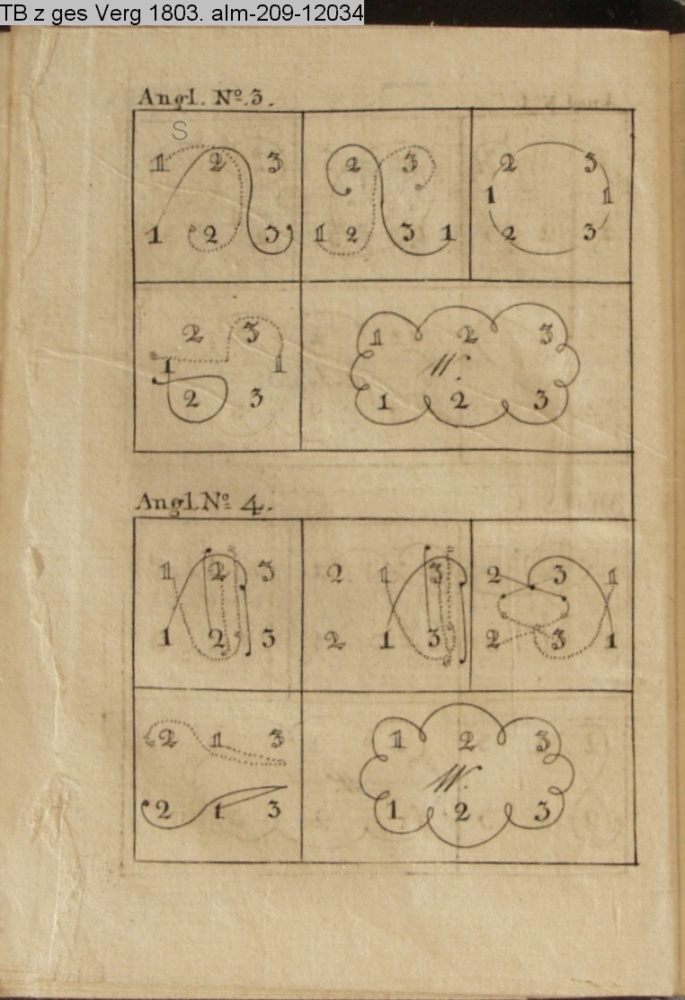 TB z ges Verg 1803. alm-209-12034
Angl. No. 3.
S
1 2 3
1 2 3
2 3
1 2 3 1
2 3
1 1
2 3
2 3
1 1
2 3
1 2 3
W.
1 2 3
Angl. No. 4.
1 2 3
1 2 3
2 1 3
2 1 3
2 3 1
2 3 1
2 1 3
2 1 3
1 2 3
W.
1 2 3